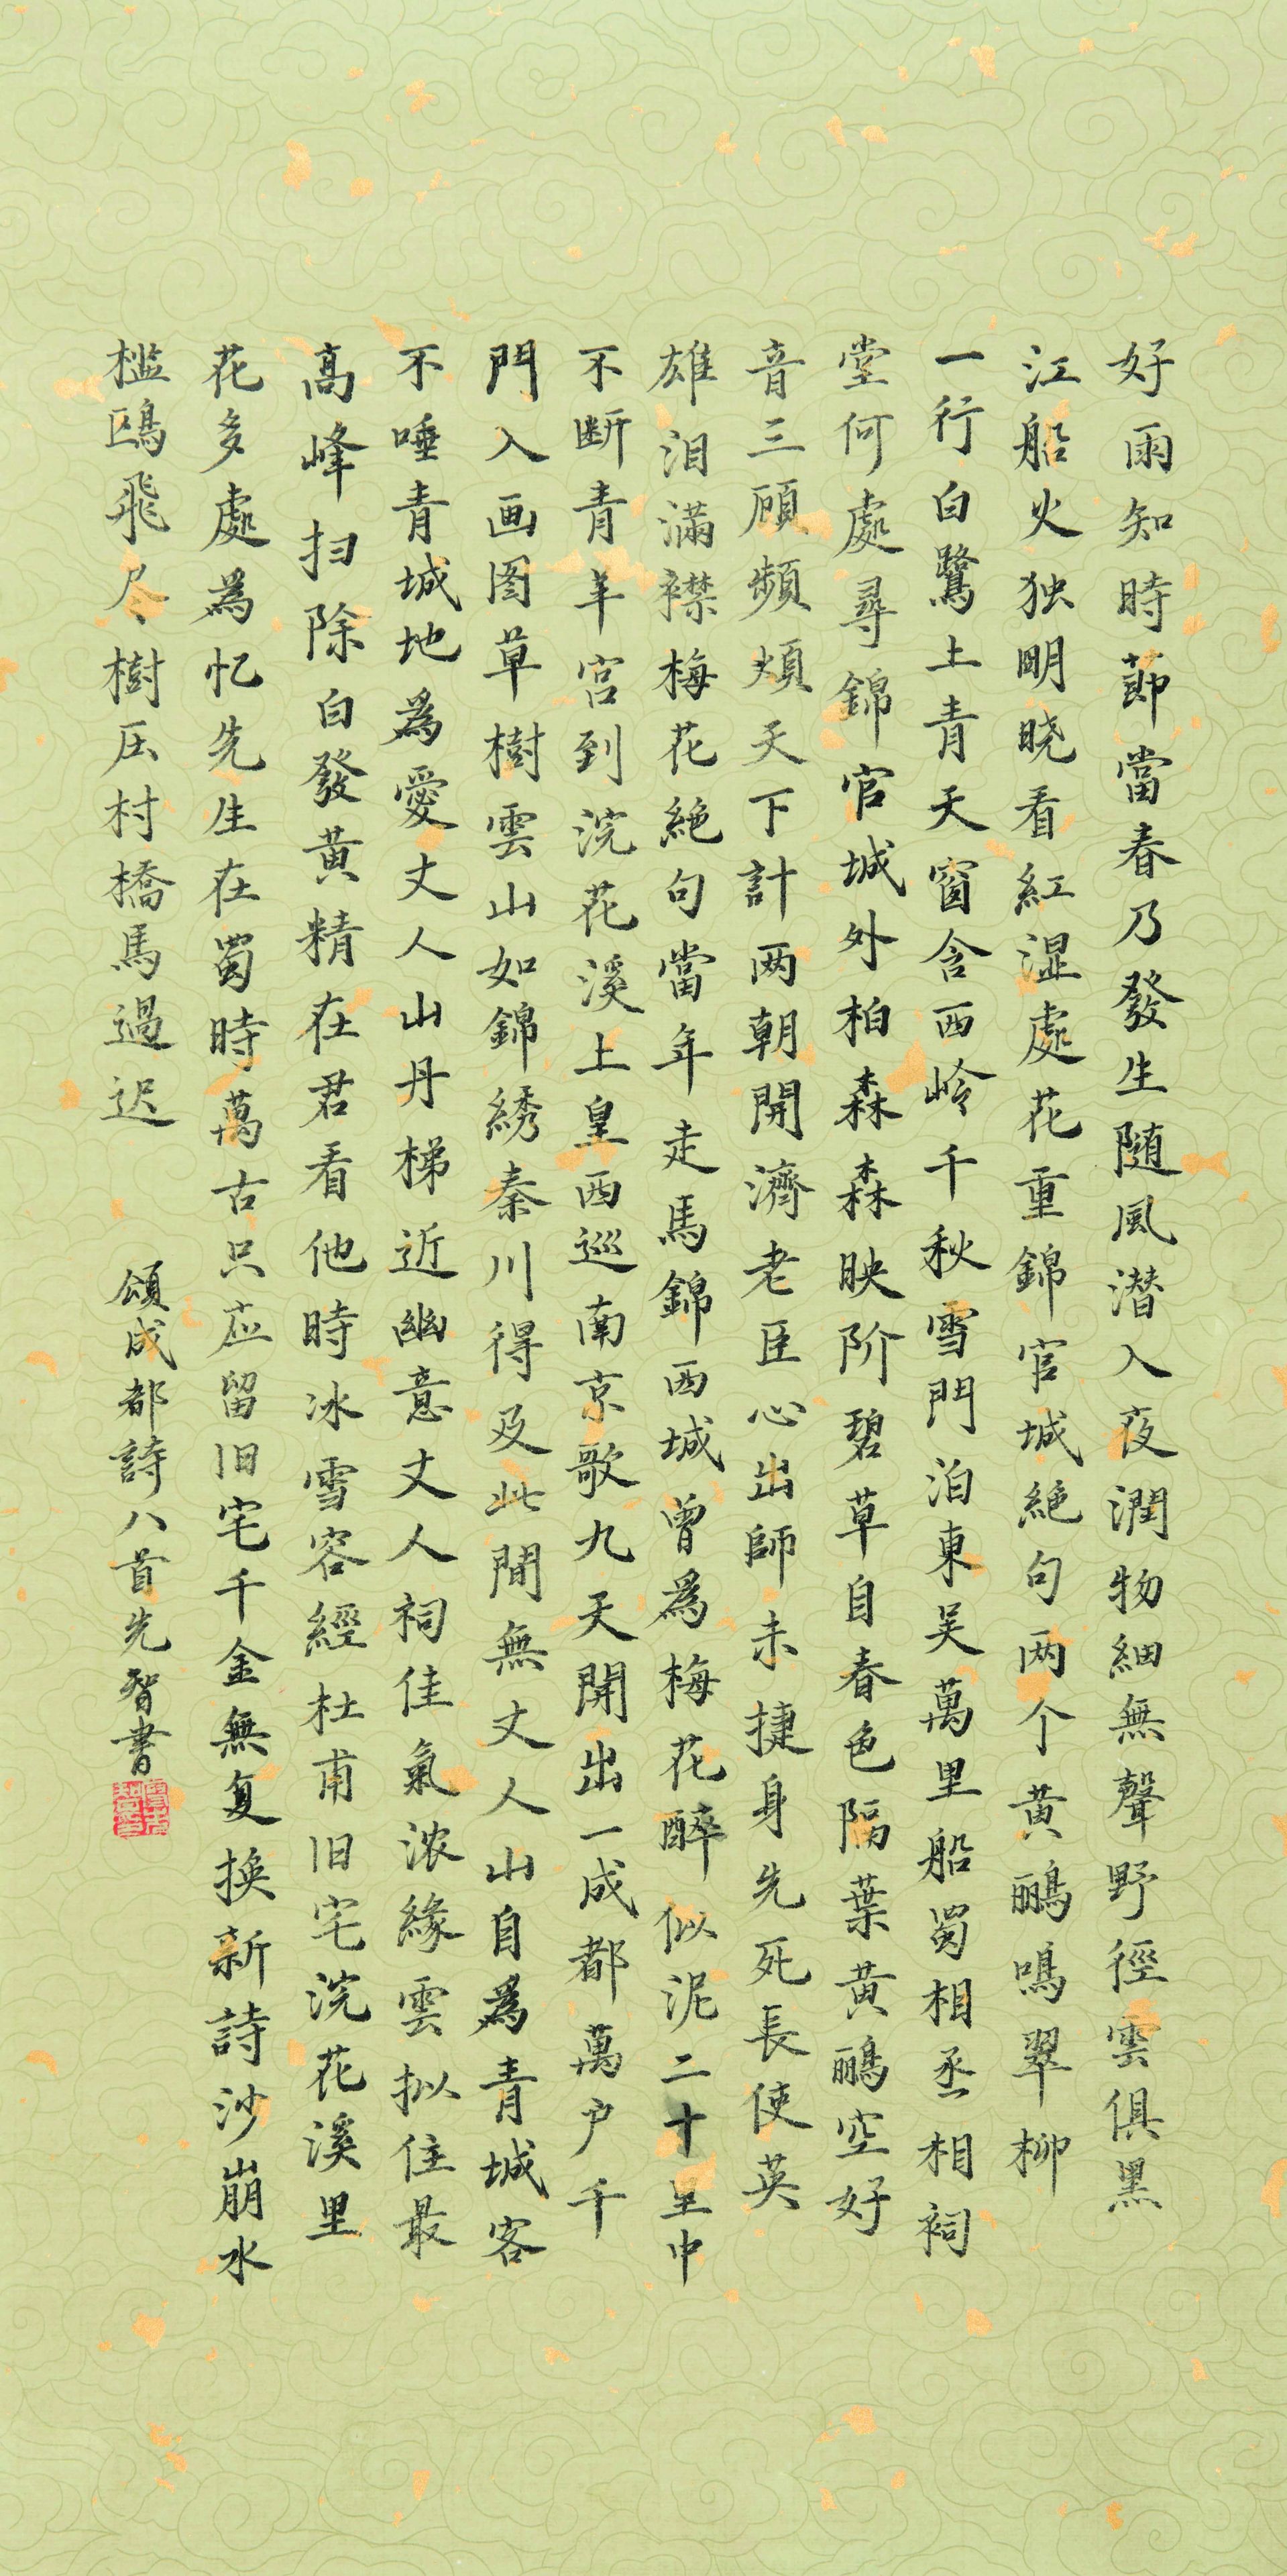 好雨知時節當春乃發生随風潛入夜潤物細無聲野徑雲俱黑
江船火独明晓看紅湿處花重錦官城絶句两个黄鸝鳴翠柳
一行白鷺上青天窗含西岭千秋雪門泊東吴萬里船蜀相丞相祠
堂何處尋錦官城外柏森森映阶碧草自春色隔葉黄鸝空好
音三顾頻煩天下計两朝開濟老臣心出師未捷身先死長使英
雄泪滿襟梅花絶句當年走馬錦西城曾爲梅花醉似泥二十里中
不断青羊宫到浣花溪上皇西巡南京歌九天開出一成都萬户千
門入画图草樹雲山如錦綉秦川得及此間無丈人山自爲青城客
不唾青城地爲愛丈人山丹梯近幽意丈人祠佳氣浓緣雲拟住最
高峰扫除白發黄精在君看他時冰雪容經杜甫旧宅浣花溪里
花多處爲忆先生在蜀時萬古只应留旧宅千金無复换新詩沙崩水
槛鷗飛尽樹压村橋馬過迟
頌成都詩八首先智書